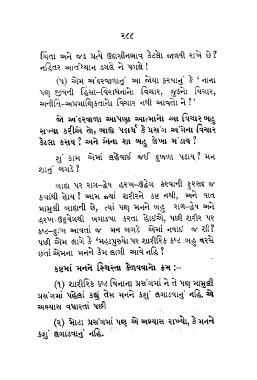 ૨૮૮
ચિંતા અને જડ પ્રત્યે ઉદાસીનભાવ કેટલો જાળવી રાખે છે?
નહિતર આર્તધ્યાન ડગલે ને પગલે!
(૫) એમ અંદરવાળાનું આ જોયા કરવાનું કે 'નાના
પણ જીવની હિંસા-વિરાધનાનો વિચાર, જૂઠનો વિચાર,
અનીતિ-અપ્રમાણિકતાનો વિચાર નથી આવતો ને!'
જો અંદરવાળા આપણા આત્માનો આ વિચાર બહુ
રાખ્યા કરીએ તો, બાહ્ય પદાર્થ કે પ્રસંગ અંગેના વિચાર
કેટલા કરાય? અને એના શા બહુ લેખા મંડાય?
શું કામ એમાં લહેવાઈ જઈ દુબળા પડાય? મન
શાનું બગડે?
બાહ્ય પર રાગ-દ્વેષ હરખ-ઉદ્વેગ કરવાની ફુરસદ જ
ક્યાંથી હોય? આમ જ્યાં શરીરને કષ્ટ નથી, અને વાત
મામુલી બાહ્યની છે, ત્યાં પણ મનને બહુ રાગ-દ્વેષ અને
હરખ-ઉદ્વેગથી બગાડયા કરતા હોઈએ, પછી શરીર પર
કષ્ટ-દુઃખ આવતાં જ મન બગડે એમાં નવાઈ જ શી?
પછી એમ લાગે કે 'મહાપુરુષો પર શારીરિક કષ્ટ બહુ વરસે
છતાં એમના મનને કેમ લાગી આવે નહિ?
કષ્ટમાં મનને સ્થિરતા કેળવવાનો ક્રમ :-
(૧) શારીરિક કષ્ટ વિનાના પ્રસંગમાં ને તે પણ મામુલી
પ્રસંગમાં પહેલાં કહ્યું તેમ મનને કશું લગાડવાનું નહિ. એ
અભ્યાસ વધારતાં પછી
(૨) મોટા પ્રસંગમાં પણ એ અભ્યાસ રાખવો, કે મનને
કશું લગાડવાનું નહિ.